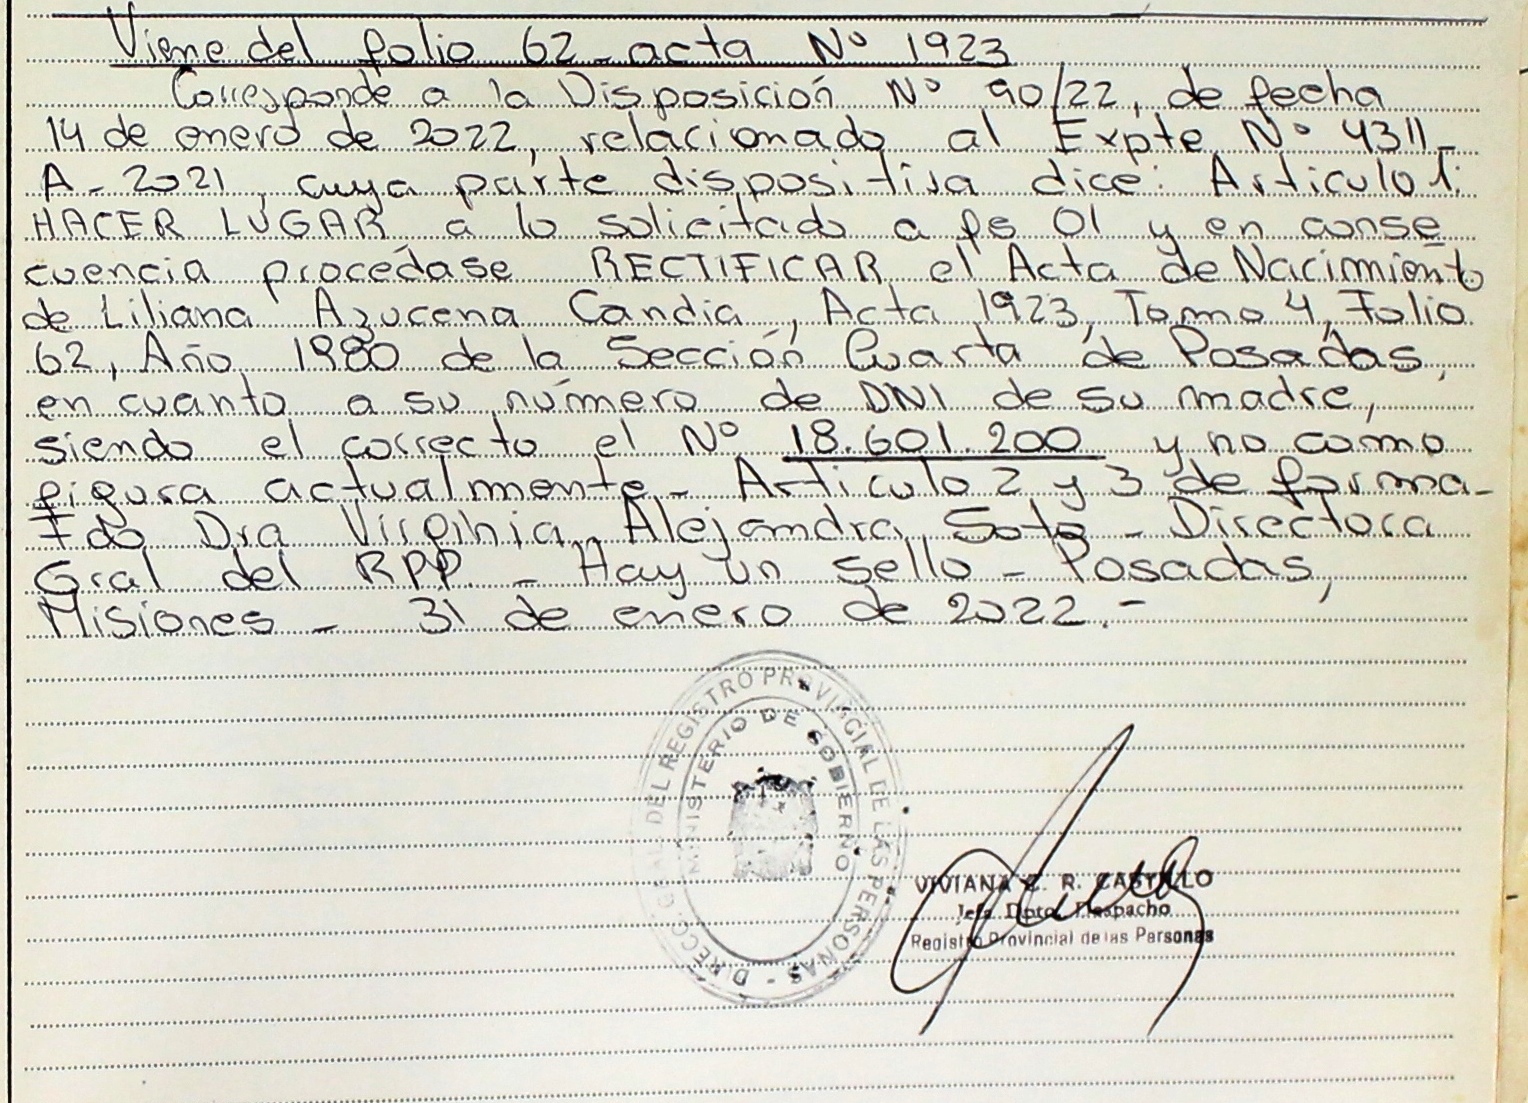 Viene del folio 62 - acta Nº 1923
Corresponde a la Disposición Nº 90/22, de fecha
14 de enero de 2022, relacionado al Expte Nº 4311-
A - 2021, cuya parte dispositiva dice: Articulo 1:
HACER LUGAR a lo solicitado a fs 01 y en conse
cuencia procédase RECTIFICAR el Acta de Nacimiento
de Liliana Azucena Candia, Acta 1923, Tomo 4, Folio
62, Año 1980 de la Sección Cuarta de Posadas,
en cuanto a su número de DNI de su madre,
siendo el correcto el Nº 18.601.200 y no como
figura actualmente - Articulo 2 y 3 de forma -
Fdo Dra Virginia Alejandra Soto - Directora
Gral del RPP. - Hay un sello - Posadas,
Misiones - 31 de enero de 2022.-
DIRECC. GRAL. DEL REGISTRO PROVINCIAL DE LAS PERSONAS -
MINISTERIO DE GOBIERNO
VIVIANA C. R. CASTILLO
Jefa Dpto. Despacho
Registro Provincial de las Personas